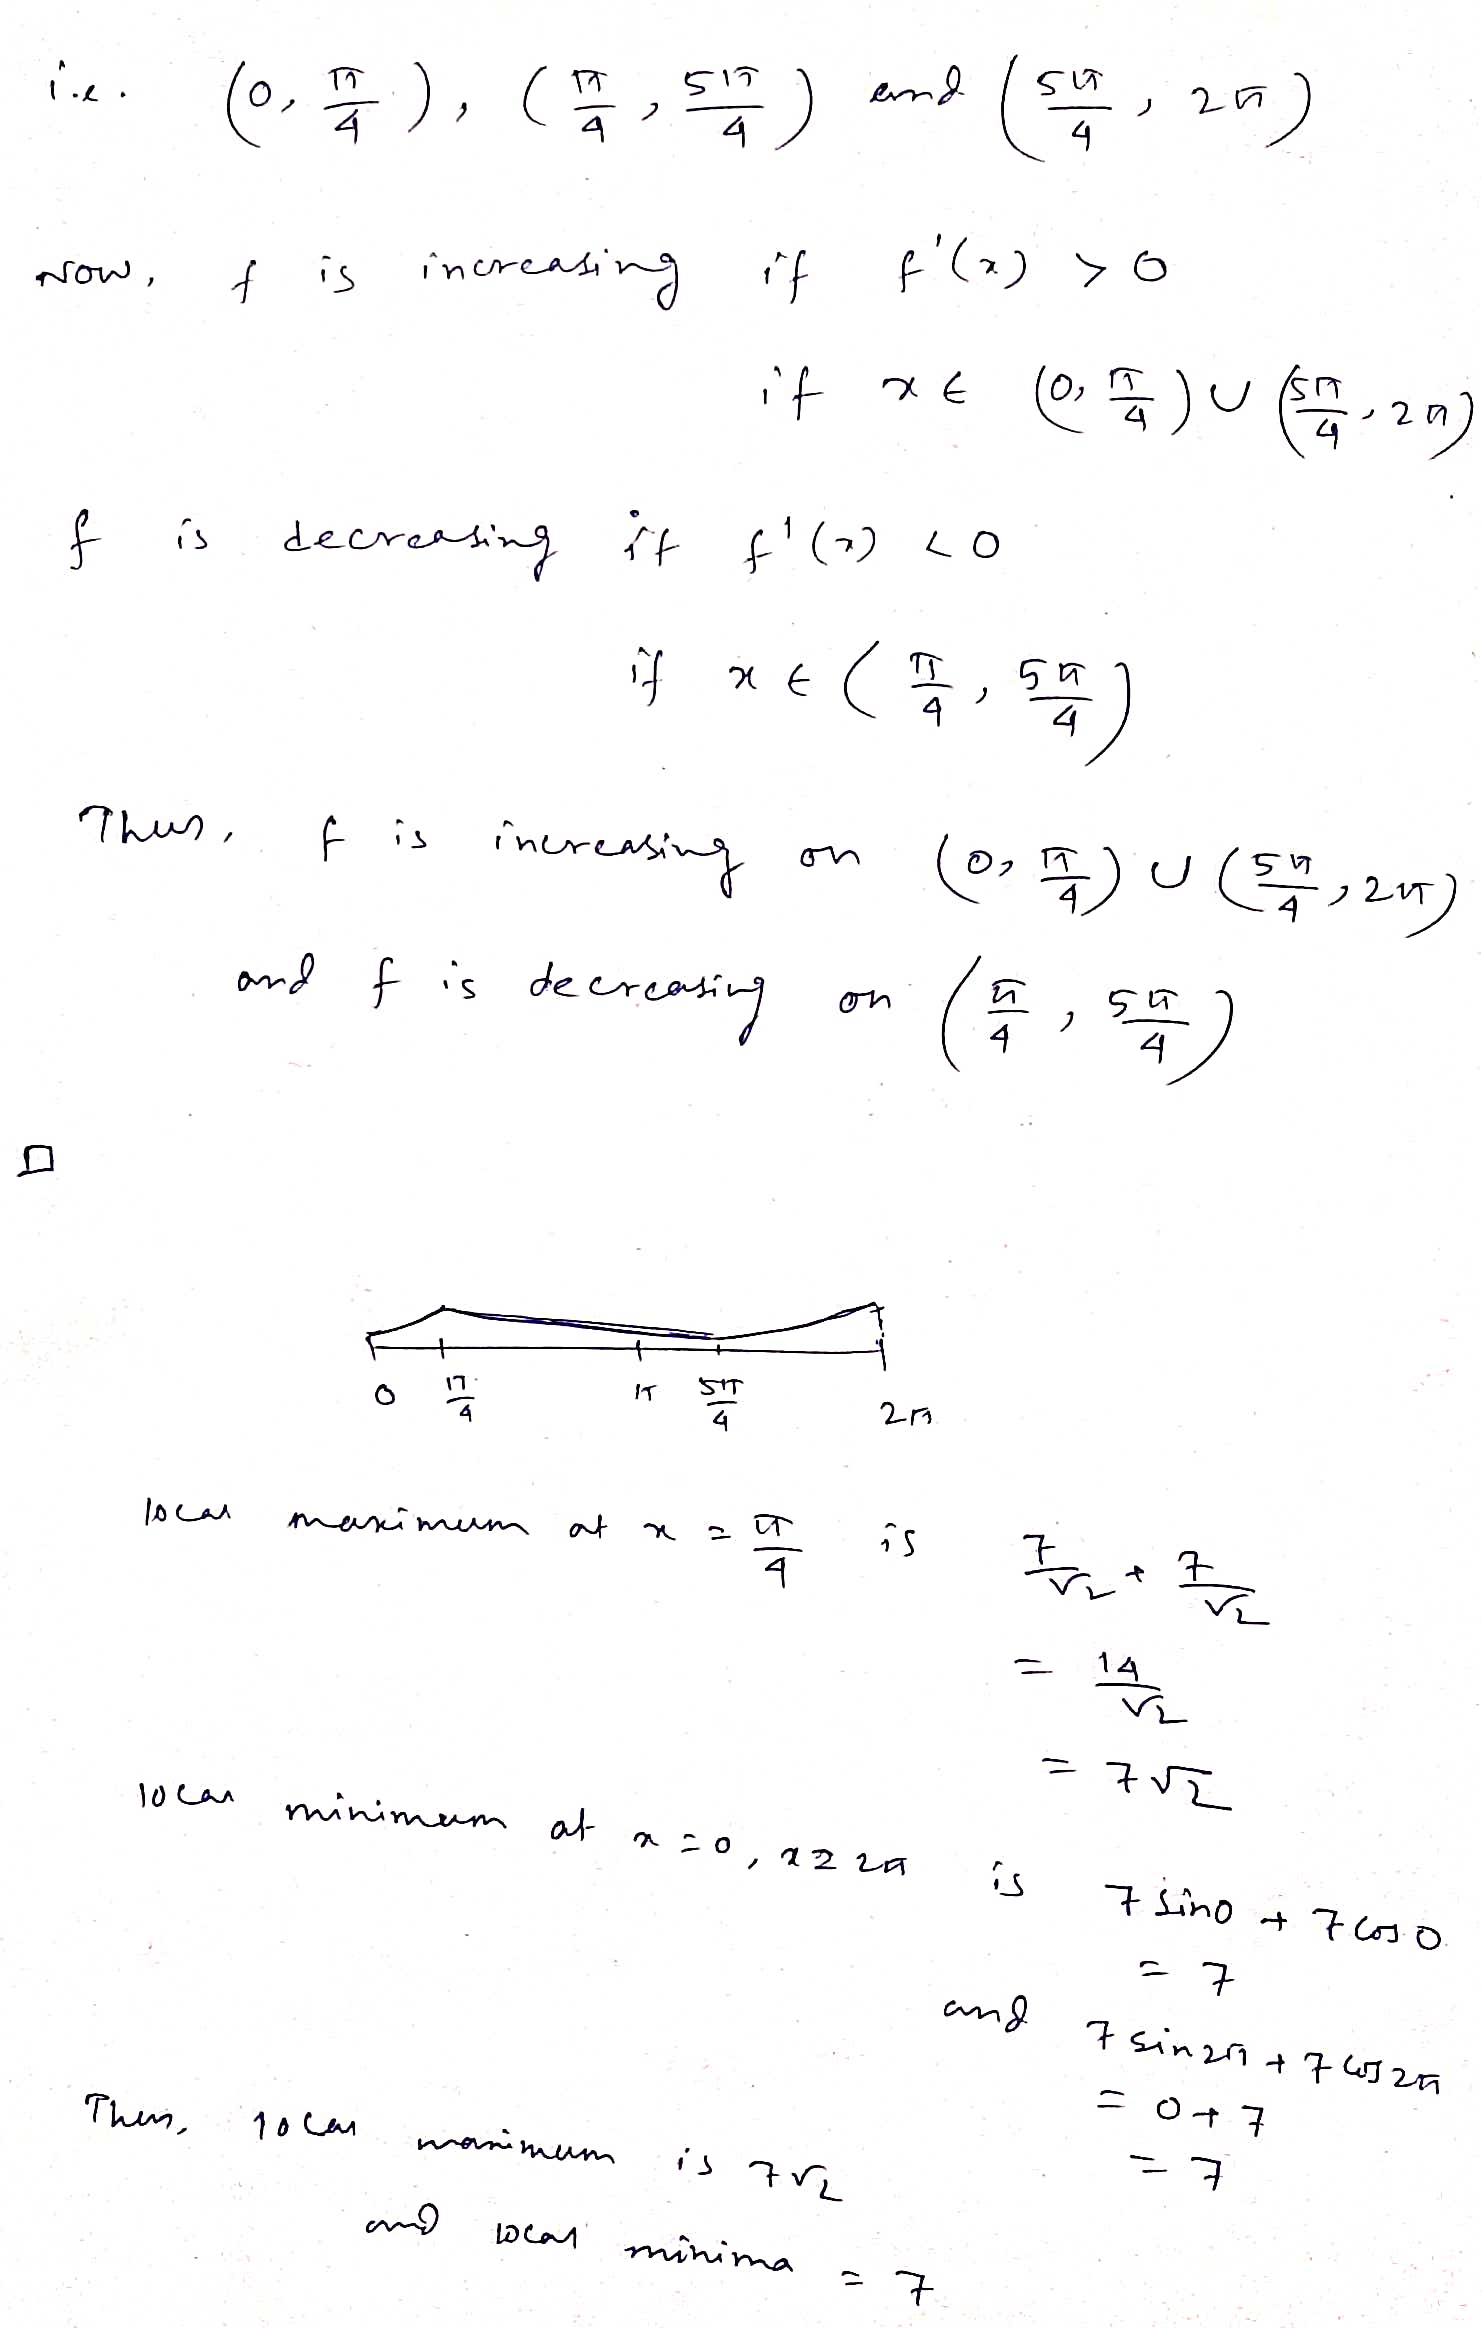 i.e. (0, π/4), (π/4, 5π/4) and (5π/4, 2π)
Now, f is increasing if f'(x) > 0
if x ∈ (0, π/4) ∪ (5π/4, 2π)
f is decreasing if f'(x) < 0
if x ∈ (π/4, 5π/4)
Thus, f is increasing on (0, π/4) ∪ (5π/4, 2π)
and f is decreasing on (π/4, 5π/4)
0 π/4 π 5π/4 2π
local maximum at x = π/4 is 7/√2 + 7/√2
= 14/√2
= 7√2
local minimum at x = 0, x = 2π is 7 sin 0 + 7 cos 0
= 7
and 7 sin 2π + 7 cos 2π
= 0 + 7
= 7
Thus, local maximum is 7√2
and local minima = 7